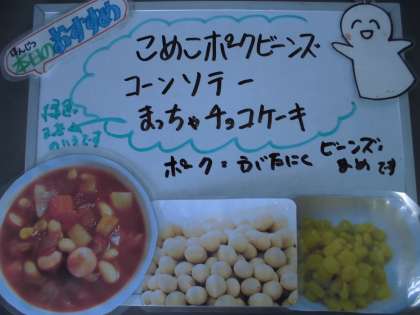 ほんじつ
本日の
おすすめ
こめこポークビーンズ
コーンソテー
まっちゃチョコケーキ
のいろです
ポーク：ぶたにく
ビーンズ：
まめです